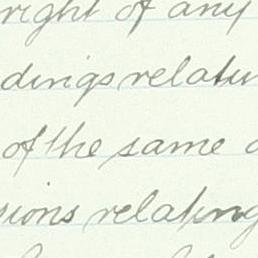 right of any
dings relatin
of the same
sions relating